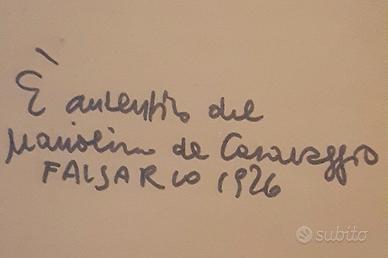 È autentico del
Mariolino da Caravaggio
FALSARIO 1926
subito